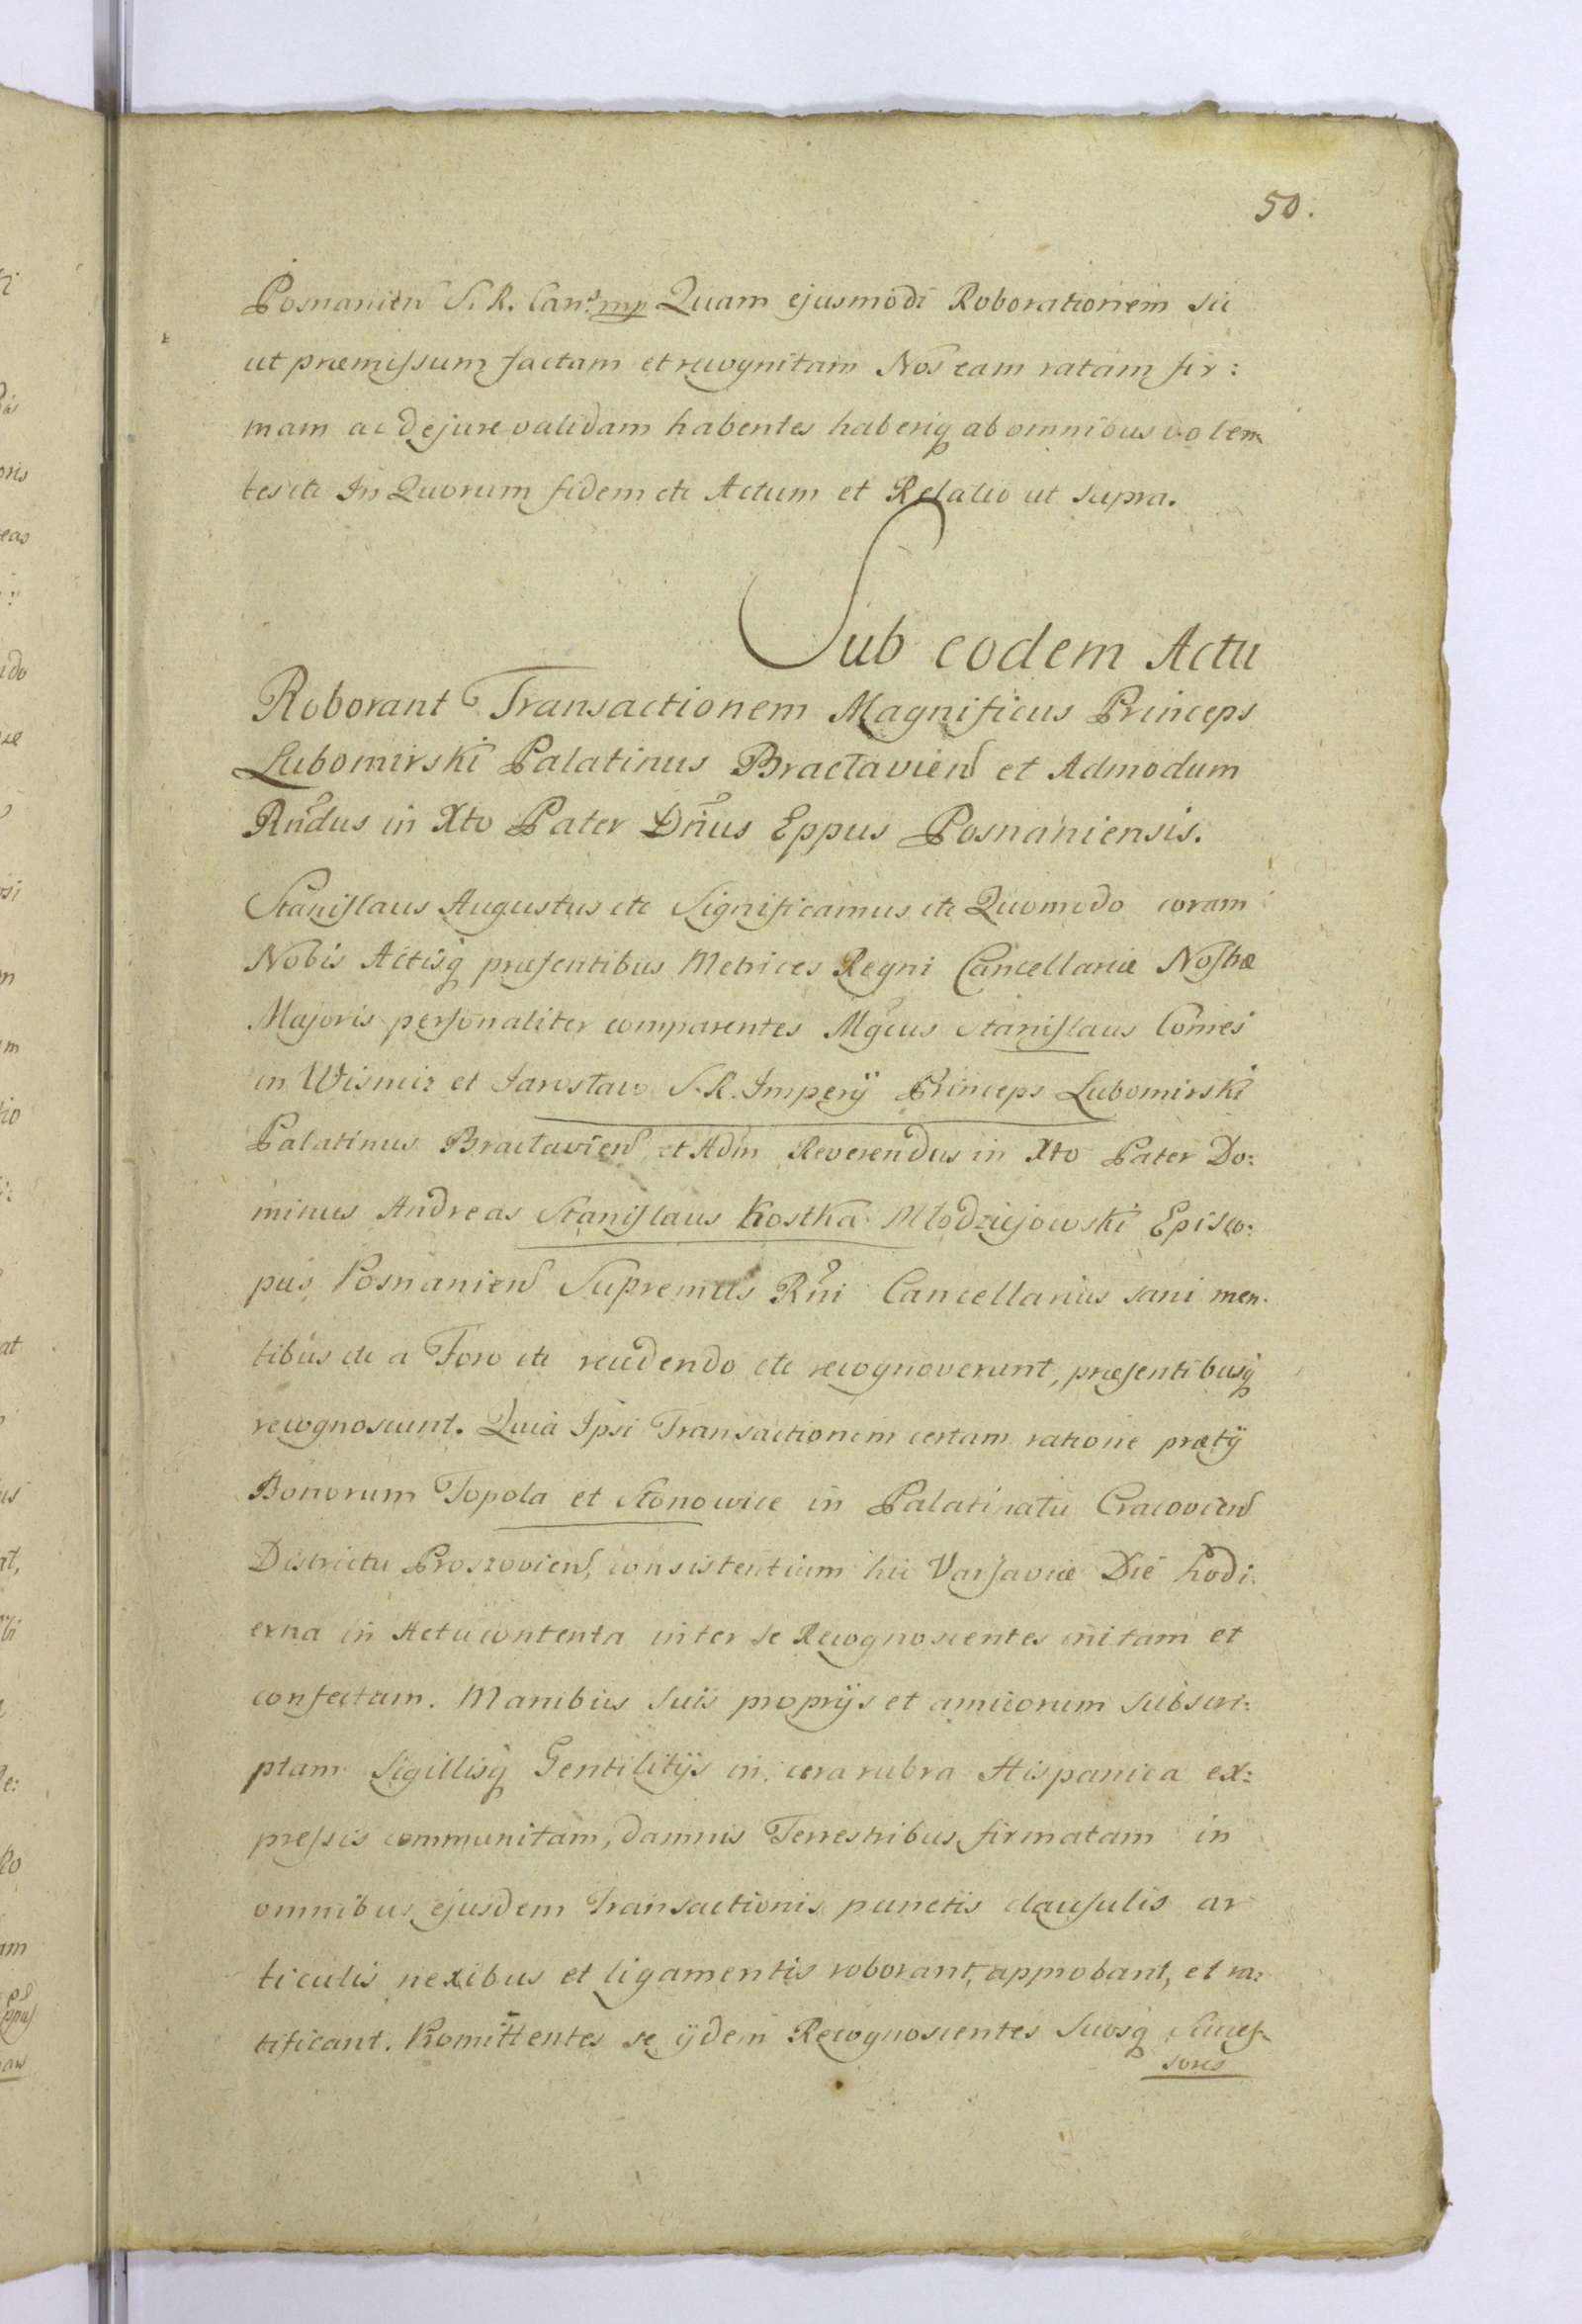 50.
Posnanien S. R. Canc. mp Quam ejusmodi Roborationem sic
ut præmissum factam et recognitam Nos eam ratam fir:
mam ac de jure validam habentes haberiq ab omnibus volen
tes etc In Quorum fidem etc Actum et Relatio ut supra.
Sub eodem Actu
Roborant Transactionem Magnificus Princeps
Lubomirski Palatinus Braclavien et Admodum
Rndus in Xto Pater Dnus Eppus Posnaniensis.
Stanislaus Augustus etc Significamus etc Quomodo coram
Nobis Actisq præsentibus Metrices Regni Cancellariæ Nostræ
Majoris personaliter comparentes Mgcus Stanislaus Comes
in Wisnicz et Jaroslaw S. R. Imperij Princeps Lubomirski
Palatinus Braclavien et Adm Reverendus in Xto Pater Do:
minus Andreas Stanislaus Kostka Młodziejowski Episco:
pus Posnanien Supremus Rni Cancellarius sani men
tibus etc a Foro etc recedendo etc recognoverunt, præsentibusq
recognoscunt. Quia Ipsi Transactionem certam ratione prætij
Bonorum Topola et Stonowice in Palatinatu Cracovien
Districtu Proszovien, consistentium hic Varsaviæ Die hodi.
erna in Actu contenta inter se Recognoscentes initam et
confectam. Manibus suis proprijs et amicorum subscri:
ptam Sigillisq Gentilitijs in cera rubra Hispanica ex:
pressis communitam, damnis Terrestribus firmatam in
omnibus ejusdem Transactionis punctis clausulis ar
ticulis nexibus et ligamentis roborant, approbant, et ra:
tificant. Promittentes se ijdem Recognoscentes Suosq Succes
sores